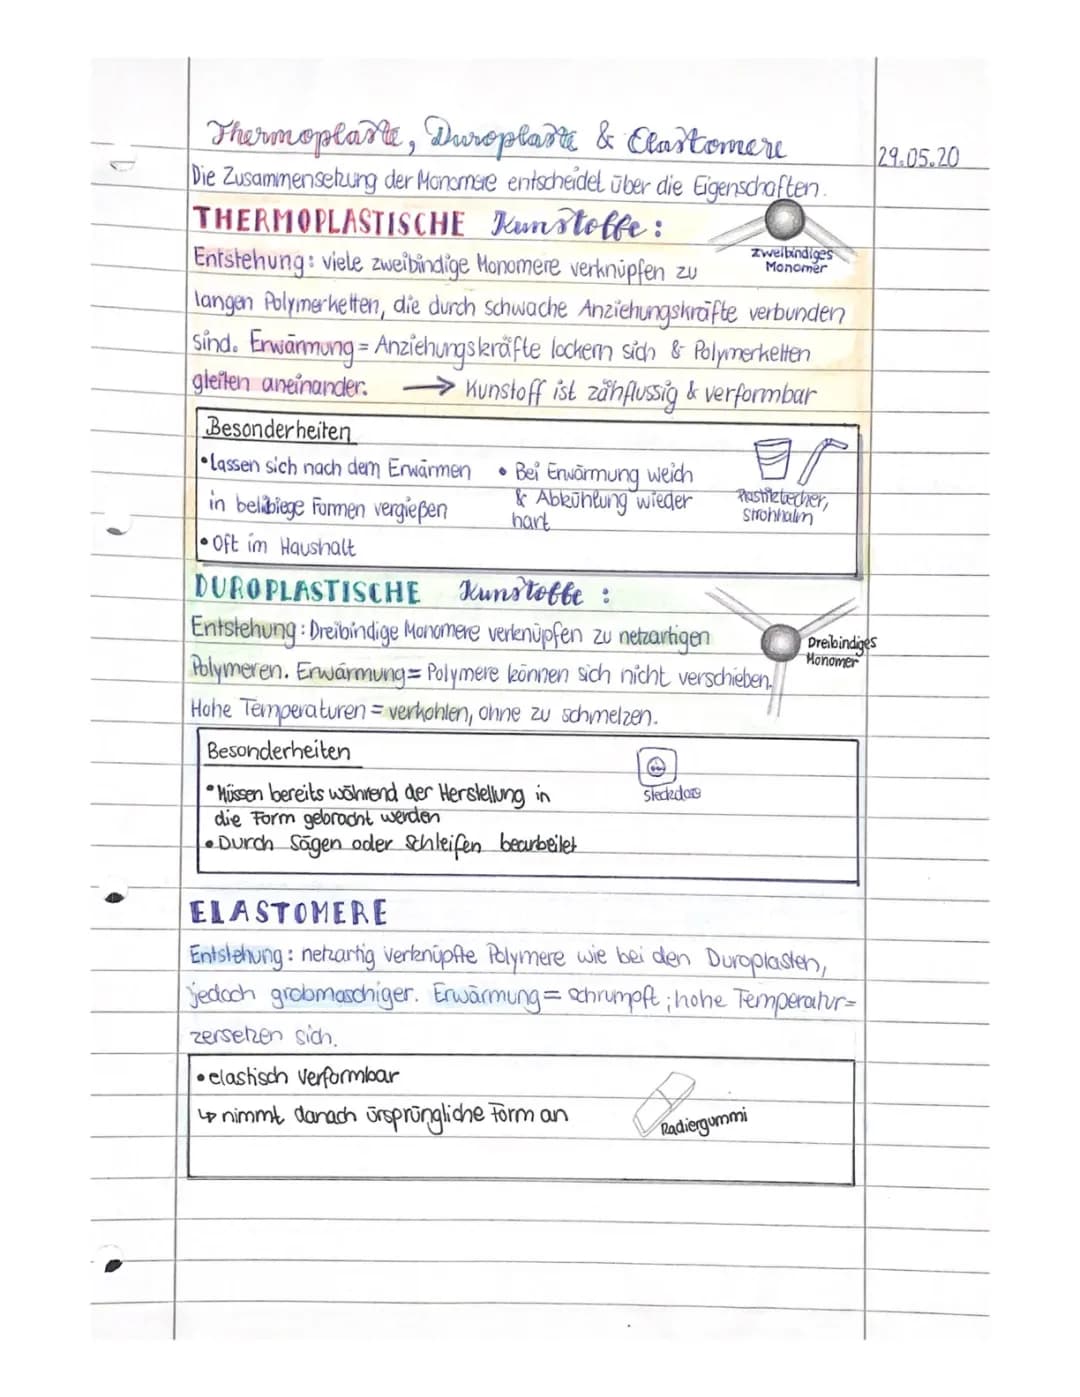 Thermoplaste, Duroplaste & Elastomere
29.05.20
Die Zusammensetzung der Monomere entscheidet über die Eigenschaften.
THERMOPLASTISCHE Kunstoffe:
zweibindiges
Monomer
Entstehung: viele zweibindige Monomere verknüpfen zu
langen Polymerketten, die durch schwache Anziehungskräfte verbunden
sind. Erwärmung = Anziehungskräfte lockern sich & Polymerketten
gleiten aneinander. → Kunstoff ist zähflüssig & verformbar
Besonderheiten
•lassen sich nach dem Erwärmen
in belibiege Formen vergießen
•Oft im Haushalt
• Bei Erwärmung weich
& Abkühlung wieder
hart
Plastikbecher,
Strohhalm
DUROPLASTISCHE Kunstoffe:
Entstehung: Dreibindige Monomere verknüpfen zu netzartigen
Dreibindiges
Monomer
Polymeren. Erwärmung = Polymere können sich nicht verschieben.
Hohe Temperaturen = verkohlen, ohne zu schmelzen.
Besonderheiten
•Müssen bereits während der Herstellung in
die Form gebracht werden
•Durch Sägen oder Schleifen bearbeitet
Steckdose
ELASTOMERE
Entstehung: netzartig verknüpfte Polymere wie bei den Duroplasten,
jedoch grobmaschiger. Erwärmung = schrumpft; hohe Temperatur=
zersetzen sich.
•elastisch verformbar
↳ nimmt danach ürsprüngliche Form an
Radiergummi